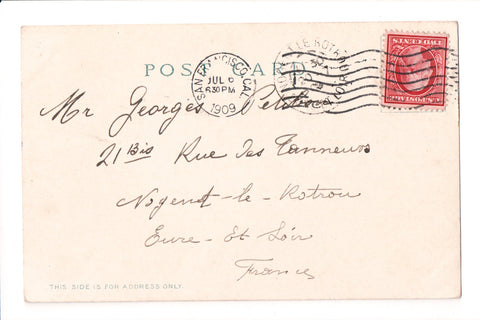 POST CARD
SAN FRANCISCO, CAL.
JUL 6
630 PM
1909
Mr Georges
21 Bis Rue des Tanneurs
Nogent-le-Rotrou
Eure-Et Loir
France
THIS SIDE IS FOR ADDRESS ONLY.